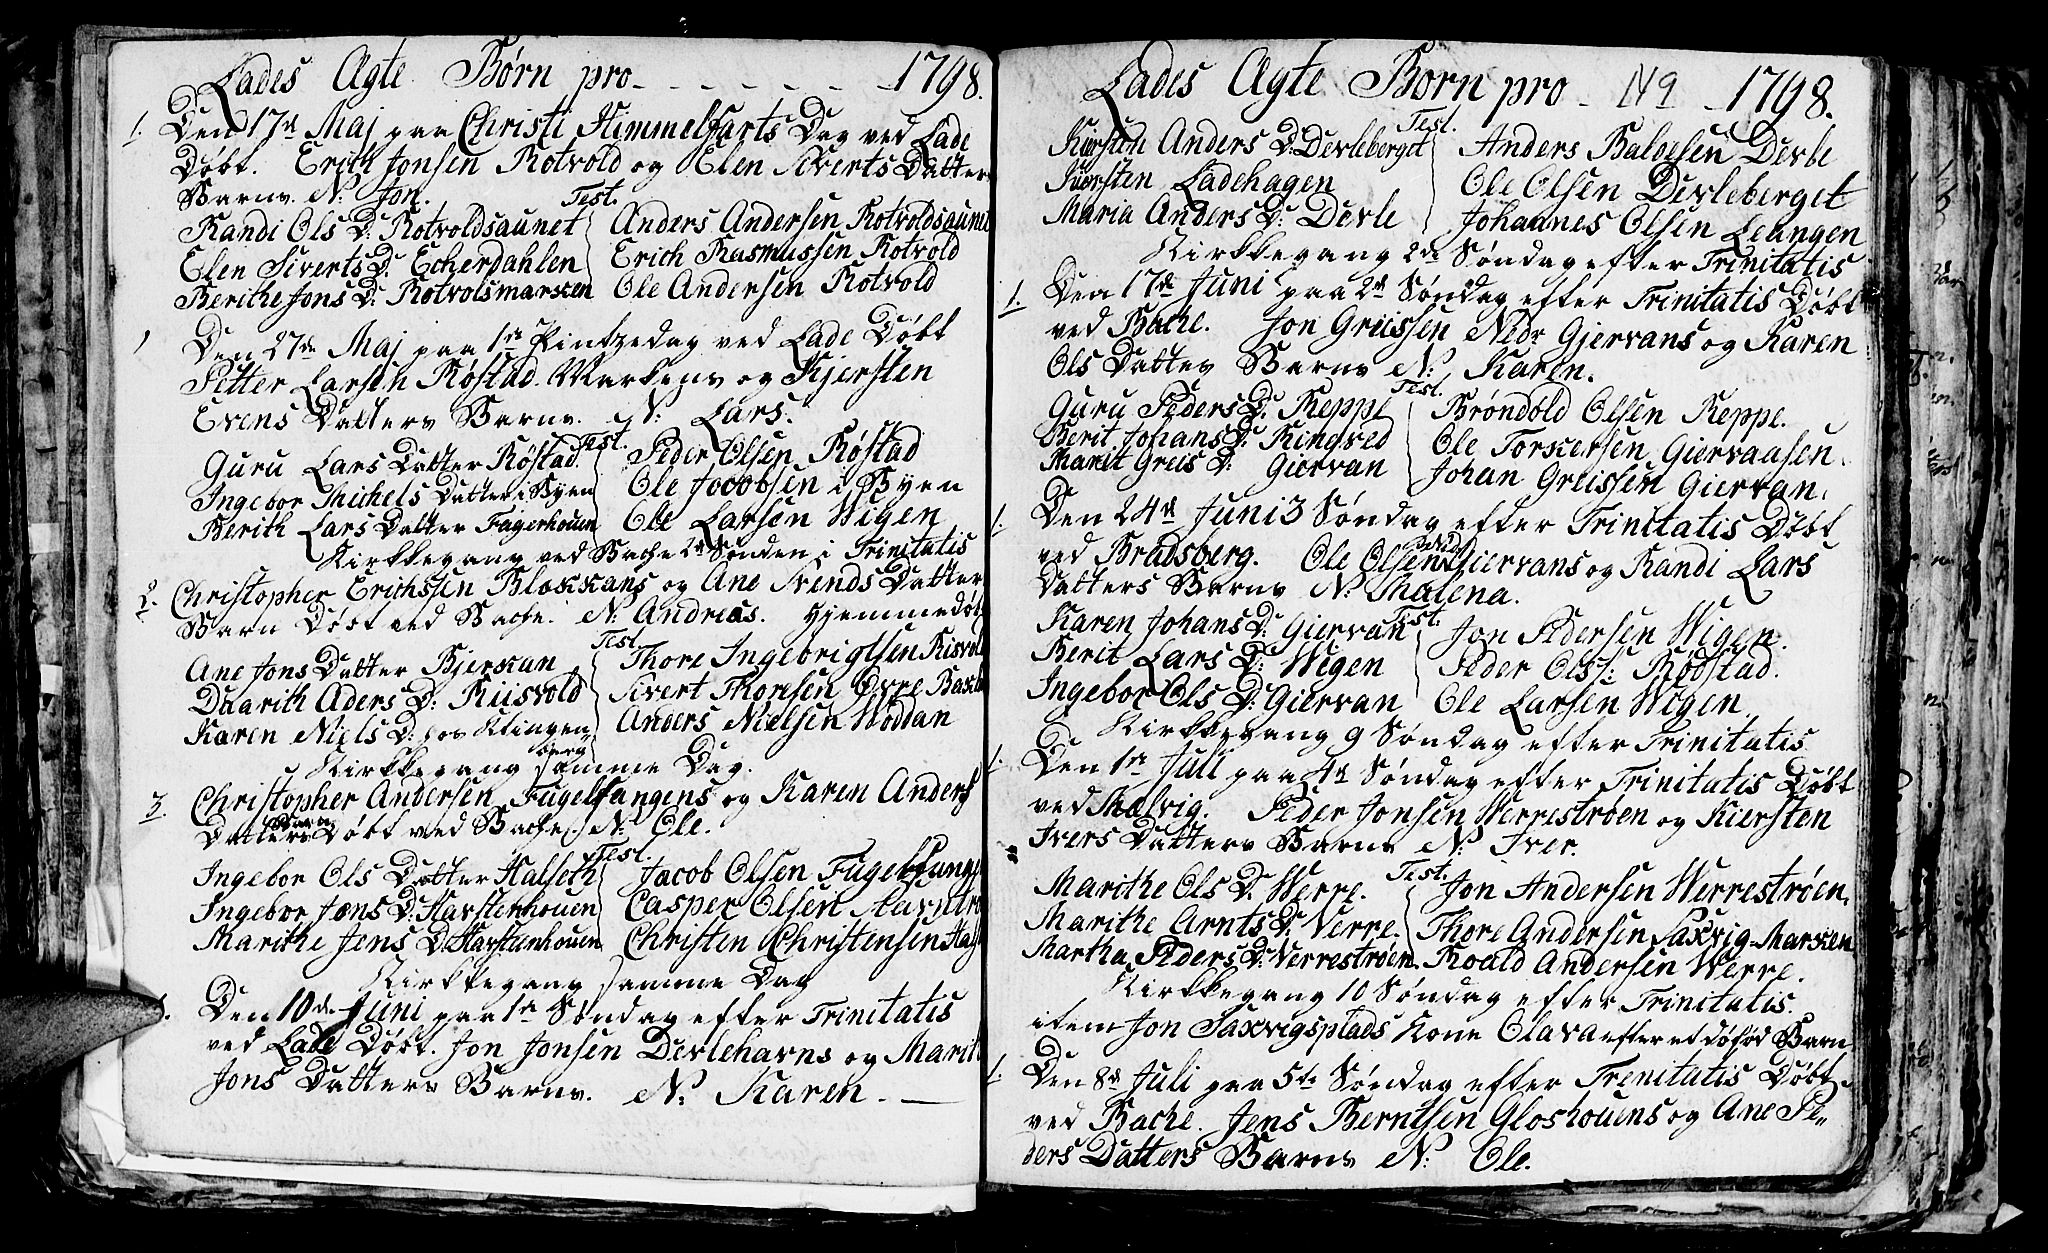 Lades Ægte Børn pro - - - - - - - 1798.
1. Den 17de Maj paa Christi Himmelfarts Dag ved Lade
Døbt. Erich Jonsen Rotvold og Elen Siverts Datters
Barn. N: Jon. Test.
Randi Ols D: Rotvoldsaunet Anders Andersen Rotvoldsaune
Elen Siverts D: Echerdahlen Erich Rasmussen Rotvold
Berithe Jons D: Rotvolsmarken Ole Andersen Rotvold
1 Den 27de Maj paa 1ste Pintzedag ved Lade Døbt
Petter Larsen Røstad Markens og Kjersten
Evens Datters Barn. N: Lars.
Test.
Guru Lars Datter Røstad. Peder Olsen Røstad
Ingebor Michels Datter i Byen Ole Jocobsen i Byen
Berith Lars Datter Fagerhouen Ole Larsen Wigen
Kirkkegang ved Bache 2de Sønden i Trinitatis
2. Christopher Erichssen Blokkans og Ane Svends Datter
Barn Døbt ved Bache. N: Andreas. Hjemmedøb
Test.
Ane Jons Datter Bjerkan Thore Ingebrigtsen Risvold
Daarith Aders D: Riisvold Sivert Thoresen Øvre Bakk
Karen Niels D: hos Klingen Anders Nielsen Woddan
berg
Kirkkegang samme Dag.
3. Christopher Andersen Fugelfangens og Karen Anders
Barn
Datters Døbt ved Bache. N: Ole.
Test.
Ingebor Ols Datter Halseth Jacob Olsen Fugelfang
Ingebor Jons D: Karstenhouen Casper Olsen
Marithe Jens D: Karstenhouen Christen Christensen
Kirkkegang samme Dag
Den 10de Juni paa 1ste Søndag efter Trinitatis
ved Lade Døbt. Jon Jonsen Devlehavns og Marit
Jons Datters Barn. N: Karen. —
Lades Ægte Børn pro - 149 - 1798.
Test.
Kiersten Anders D: Devleberget Anders Baldesen Devle
Kiersten Ladehagen Ole Olsen Devleberget
Maria Anders D: Devle Johannes Olsen Leangen
Kirkkegang 2de Søndag efter Trinitatis
1. Den 17de Juni paa 2de Søndag efter Trinitatis Døbt
ved Bache. Jon Greissen Nedr Gjervans og Karen
Ols Datters Barn N: Karen.
Test.
Guru Peders D: Reppe Brøndold Olsen Reppe.
Berit Johans D: Ringved Ole Torkersen Giervaasen
Marit Greis D: Giervan Johan Greissen Giervan.
1. Den 24de Juni 3 Søndag efter Trinitatis Døbt
ved Bradsberg. Ole Olsen Giervans og Randi Lars
Datters Barn N: Malena.
Test.
Karen Johans D: Giervan Jon Pedersen Wigen.
Berit Lars D: Wigen Peder Olss: Røøstad.
Ingebor Ols D: Giervan Ole Larsen Wigen
Kirkkegang 9 Søndag efter Trinitatis
1. Den 1ste Juli paa 4de Søndag efter Trinitatis Døbt
ved Malvig. Peder Jonsen Werrestrøen og Kiersten
Ivers Datters Barn N: Iver.
Test.
Marithe Ols D: Werre. Jon Andersen Werrestrøen.
Marithe Arnts D: Verre. Thore Andersen Saxvig-Marken
Martha Peders D: Verrestrøen. Roald Andersen Werre.
Kirkkegang 10 Søndag efter Trinitatis.
item Jon Saxvigsplads Kone Olava efter et døfød Barn
1. Den 8de Juli paa 5te Søndag efter Trenitatis Døbt
ved Bache. Jens Berntsen Gloshouens og Ane Pe-
ders Datters Barn N: Ole.